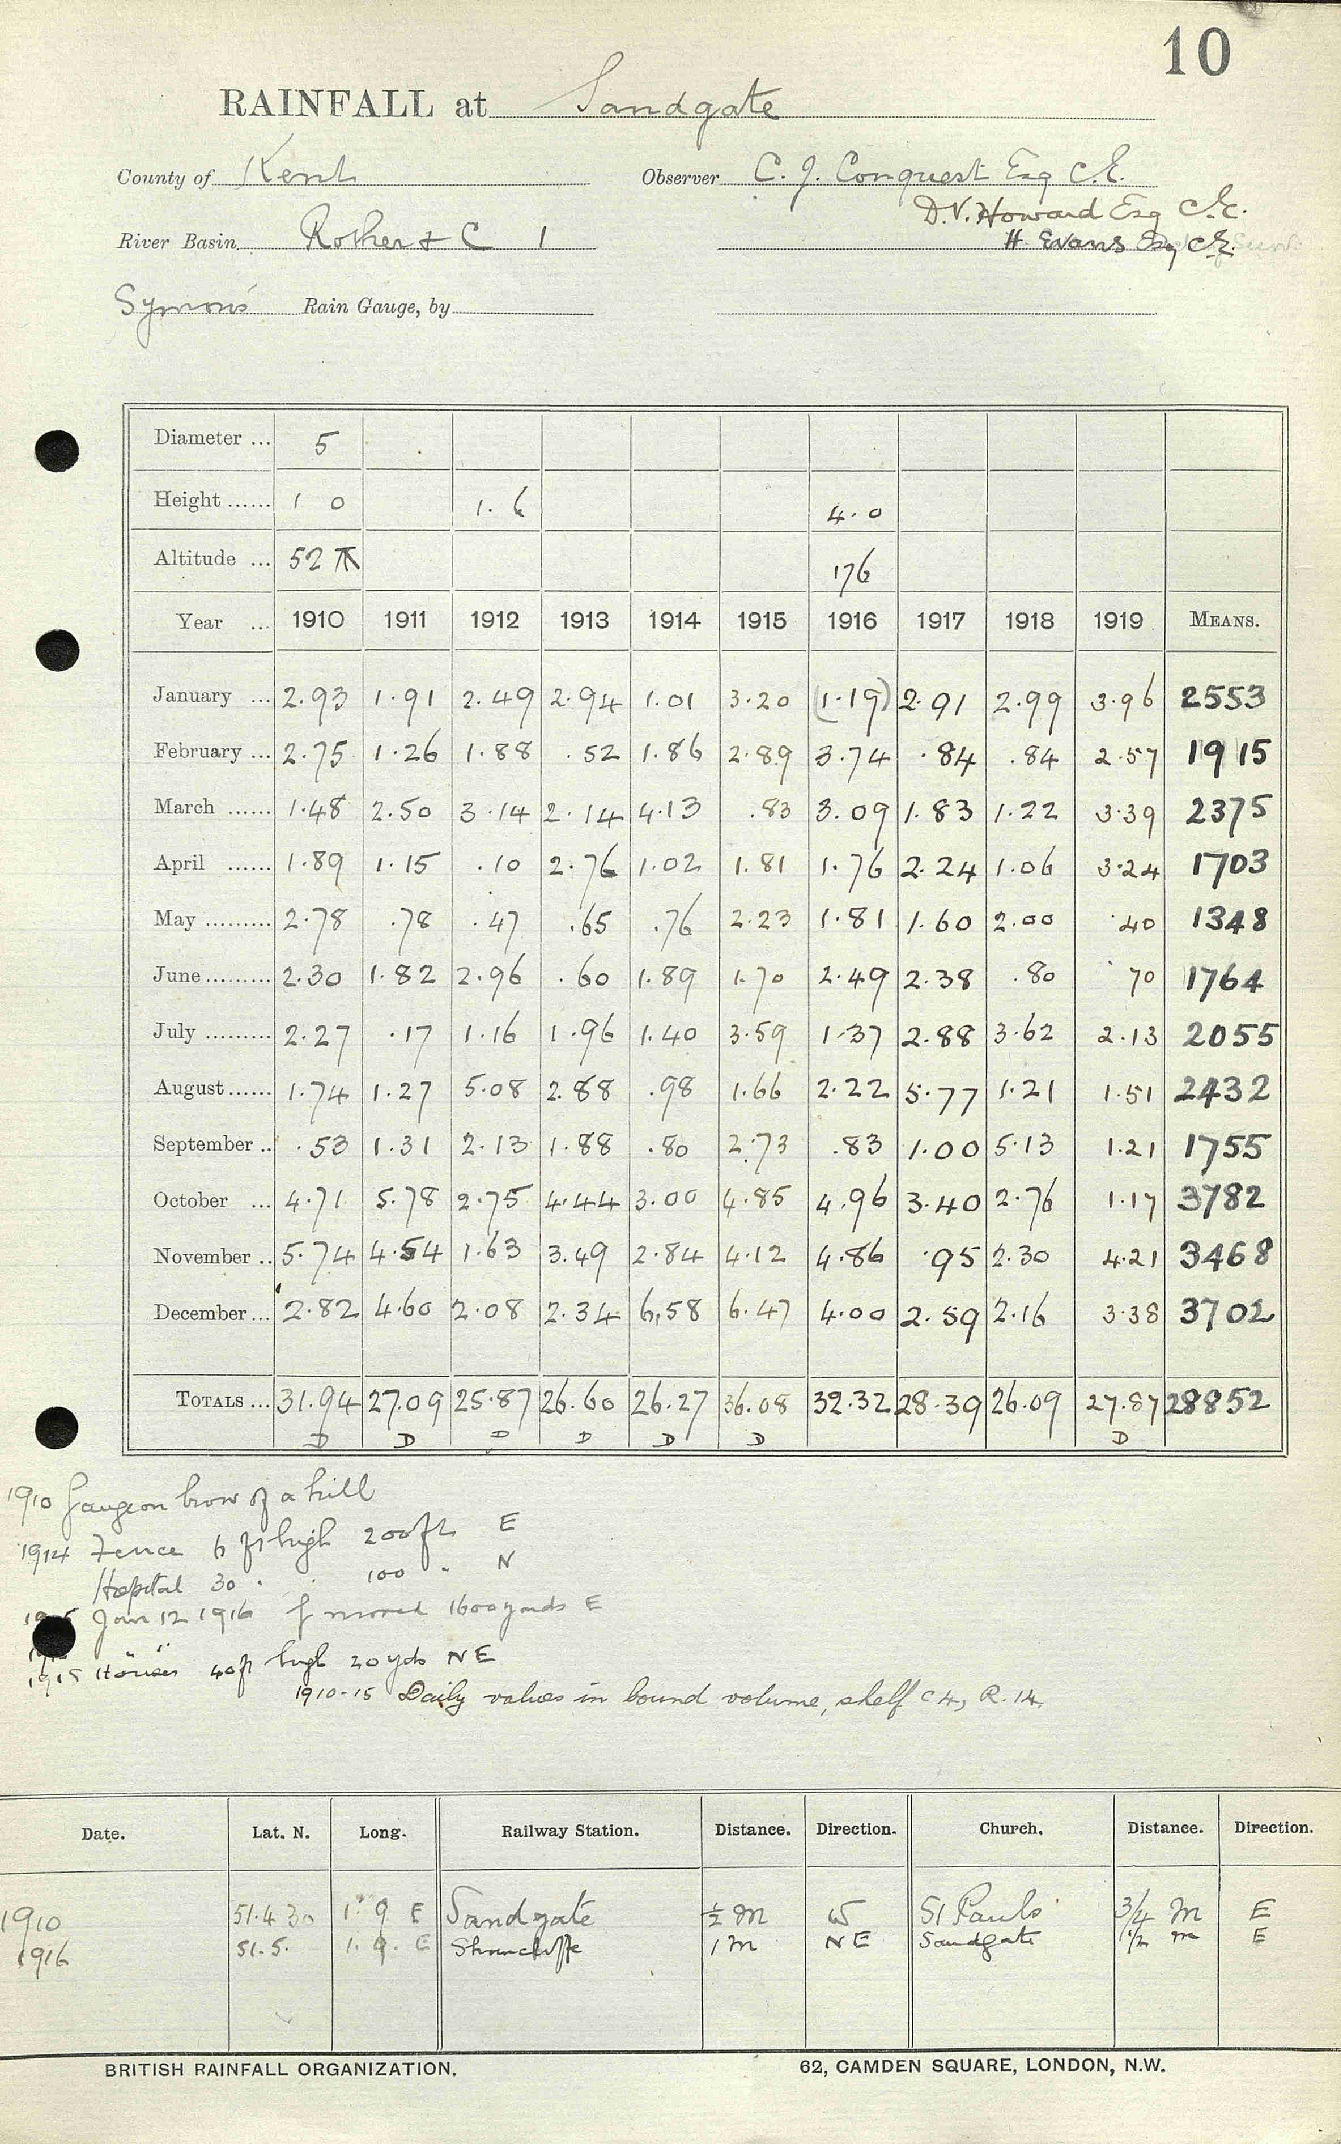 10
RAINFALL at Sandgate
County of Kent Observer C. J. Conquest Esq C.E.
D.V. Howard Esq C.E.
River Basin Rother & C 1 H. Evans Esq C.E.
Symons' Rain Gauge, by
Diameter ... 5
Height ...... 1 0 1. 6 4. 0
Altitude ... 52 176
Year ... 1910 1911 1912 1913 1914 1915 1916 1917 1918 1919 MEANS.
January ... 2.93 1.91 2.49 2.94 1.01 3.20 (1.19) 2.91 2.99 3.96 2553
February ... 2.75 1.26 1.88 .52 1.86 2.89 3.74 .84 .84 2.57 1915
March ...... 1.48 2.50 3.14 2.14 4.13 .83 3.09 1.83 1.22 3.39 2375
April ...... 1.89 1.15 .10 2.76 1.02 1.81 1.76 2.24 1.06 3.24 1703
May ......... 2.78 .78 .47 .65 .76 2.23 1.81 1.60 2.00 .40 1348
June ......... 2.30 1.82 2.96 .60 1.89 1.70 2.49 2.38 .80 .70 1764
July ......... 2.27 .17 1.16 1.96 1.40 3.59 1.37 2.88 3.62 2.13 2055
August ...... 1.74 1.27 5.08 2.88 .98 1.66 2.22 5.77 1.21 1.51 2432
September .. .53 1.31 2.13 1.88 .80 2.73 .83 1.00 5.13 1.21 1755
October ... 4.71 5.78 2.75 4.44 3.00 4.85 4.96 3.40 2.76 1.17 3782
November .. 5.74 4.54 1.63 3.49 2.84 4.12 4.86 .95 2.30 4.21 3468
December ... 2.82 4.60 2.08 2.34 6.58 6.47 4.00 2.59 2.16 3.38 3702
TOTALS ... 31.94 27.09 25.87 26.60 26.27 36.08 32.32 28.39 26.09 27.87 28852
D D D D D D D
1910 Gauge on brow of a hill
1914 Fence 6 ft high 200 ft E
Hospital 30 " " 100 " N
Jan 12 1916 moved 1600 yards E
1915 Houses 40 ft high 20 yds NE
1910-15 Daily values in bound volume, shelf C4, R. 14.
Date. Lat. N. Long. Railway Station. Distance. Direction. Church. Distance. Direction.
1910 51.4 30 1° 9 E Sandgate ½ m W St Pauls 3/4 m E
1916 51.5. 1. 9. E Shorncliffe 1 m NE Sandgate 1½ m E
BRITISH RAINFALL ORGANIZATION. 62, CAMDEN SQUARE, LONDON, N.W.